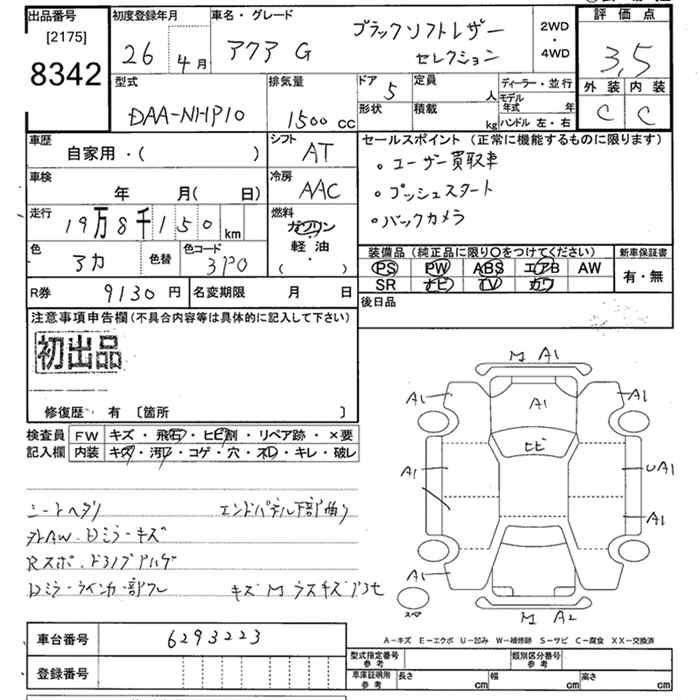 出品番号
[2175]
8342
初度登録年月
26年 4月
車名・グレード
アクア G ブラックソフトレザー
セレクション
2WD
・
4WD
評価点
3.5
外装 内装
C C
型式
DAA-NHP10
排気量
1500 cc
ドア
5
定員
人
形状
積載
kg
ディーラー・並行
モデル
年式 年
ハンドル 左・右
車歴
自家用・( )
シフト
AT
セールスポイント (正常に機能するものに限ります)
・ユーザー買取車
・プッシュスタート
・バックカメラ
車検
年 月( 日)
冷房
AAC
走行
19万8千150 km
燃料
ガソリン
軽・油
( ・ )
色
アカ
色替
色コード
3P0
装備品 (純正品に限り○をつけてください)
PS PW ABS エアB AW
SR ナビ TV カワ
新車保証書
有・無
R券 9130円
名変期限 月 日
後日品
注意事項申告欄(不具合内容等は具体的に記入して下さい)
初出品
修復歴・ 有 〔箇所 〕
検査員
記入欄
FW キズ・飛石・ヒビ割・リペア跡・×要
内装 キズ・汚レ・コゲ・穴・スレ・キレ・破レ
シートヘタリ エンドパネル下部曲り
外AW・Dミラーキズ
Dミラーウインカー部ワレ
M A1
A1 A1
A1
ヒビ
A1 UA1
A1
A1
スペア
M A2
A-キズ E-エクボ U-凹み W-補修跡 S-サビ C-腐食 XX-交換済
車台番号 6293223
登録番号
型式指定番号
参考
類別区分番号
参考
車庫証明用
参考
長さ cm
幅 cm
高さ cm